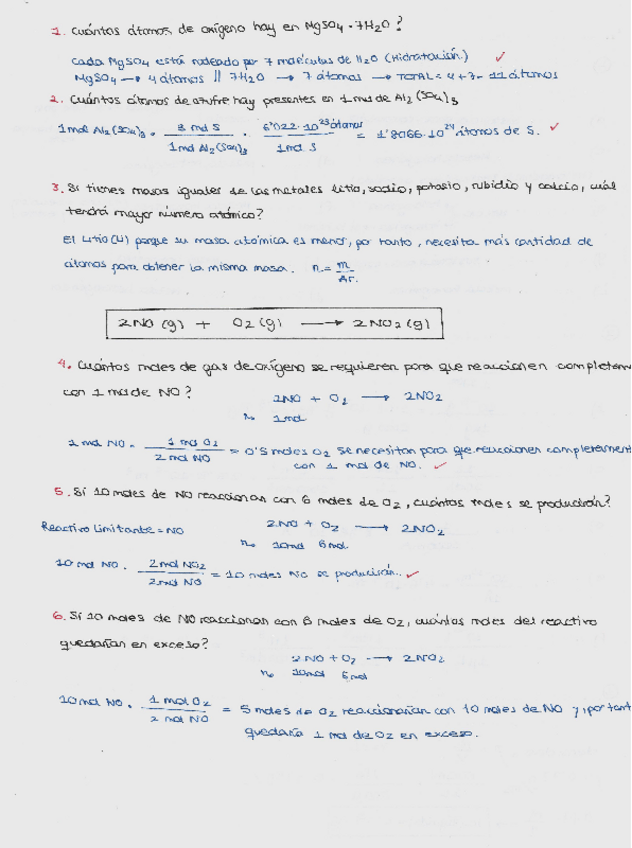 1. Cuántos átomos de oxígeno hay en MgSO4 · 7H2O ?
Cada MgSO4 está rodeado por 7 moléculas de H2O (Hidratación.) ✓
MgSO4 → 4 átomos || 7H2O → 7 átomos → TOTAL = 4+7= 11 átomos
2. Cuántos átomos de azufre hay presentes en 1 mol de Al2(SO4)3
1mol Al2(SO4)3 · 3 mol S / 1mol Al2(SO4)3 · 6'022·10^23 átomos / 1mol S = 1'8066·10^24 átomos de S. ✓
3. Si tienes masas iguales de los metales litio, sodio, potasio, rubidio y calcio, cuál
tendrá mayor número atómico?
El Litio (Li) porque su masa atómica es menor, por tanto, necesita más cantidad de
átomos para obtener la misma masa. n = m / Ar.
2NO (g) + O2 (g) → 2NO2 (g)
4. Cuántos moles de gas de oxígeno se requieren para que reaccionen completam
con 1 mol de NO?
2NO + O2 → 2NO2
n. 1mol
1 mol NO · 1 mol O2 / 2 mol NO = 0'5 moles O2 se necesitan para que reaccionen completament
con 1 mol de NO. ✓
5. Si 10 moles de NO reaccionan con 6 moles de O2, cuántos moles se producirán?
Reactivo Limitante = NO
2NO + O2 → 2NO2
n. 10mol 6mol
10 mol NO · 2mol NO2 / 2mol NO = 10 moles NO se producirán. ✓
6. Si 10 moles de NO reaccionan con 6 moles de O2, cuántos moles del reactivo
quedarían en exceso?
2NO + O2 → 2NO2
n. 10mol 6mol
10mol NO · 1 mol O2 / 2 mol NO = 5 moles de O2 reaccionarían con 10 moles de NO y, por tant
quedaría 1 mol de O2 en exceso.